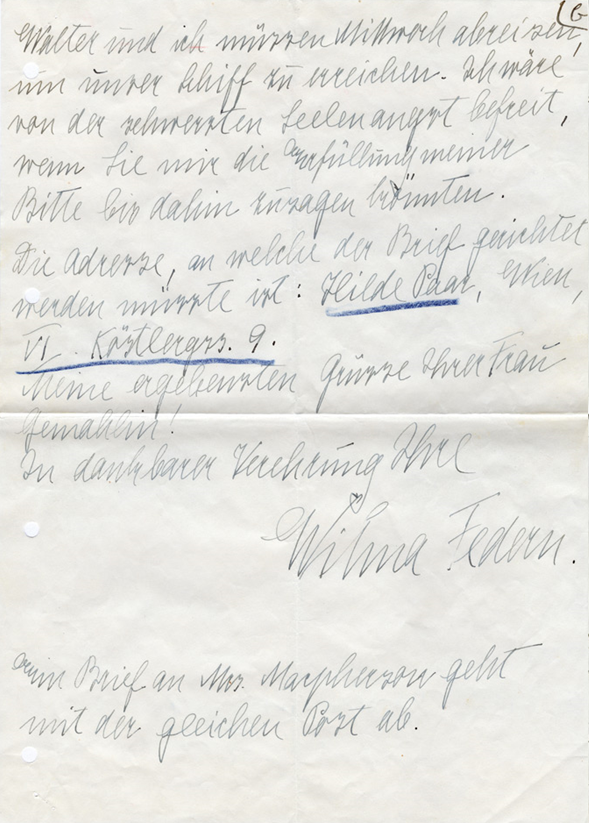 6
Walter und ich müssen Mittwoch abreisen,
um unser Schiff zu erreichen. Ich wäre
von der schwersten Seelenangst befreit,
wenn Sie mir die Erfüllung meiner
Bitte bis dahin zusagen könnten.
Die Adresse, an welche der Brief gerichtet
werden müsste ist: Hilde Paar, Wien,
VI. Köstlergss. 9.
Meine ergebensten Grüsse Ihrer Frau
Gemahlin!
In dankbarer Verehrung Ihre
Wilma Federn.
Ein Brief an Mrs. Macpherson geht
mit der gleichen Post ab.